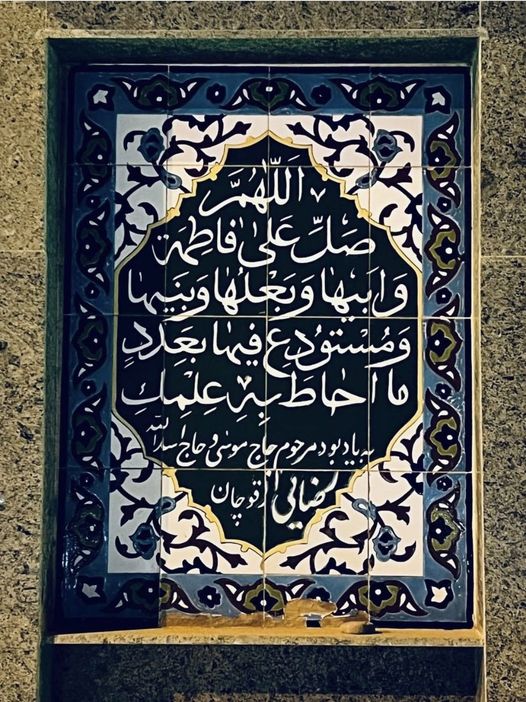 اَللّٰهُمَّ
صَلِّ عَلىٰ فاطِمَة
وَ اَبیها وَ بَعْلِها وَ بَنیها
وَ مُسْتَوْدَعِ فیها بِعَدَدِ
ما اَحاطَ بِهِ عِلْمُكَ
به یادبود مرحوم حاج موسی و حاج اسدالله
رضایی از قوچان